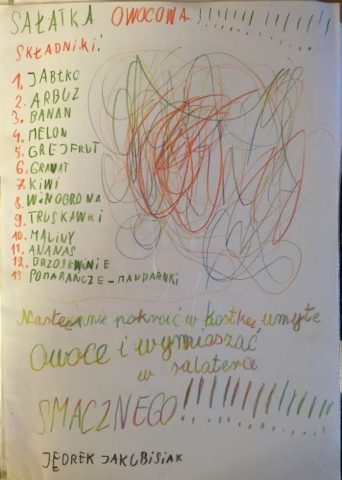 SAŁATKA OWOCOWA!!!!!!!!!!
SKŁADNIKI:
1. JABŁKO
2. ARBUZ
3. BANAN
4. MELON
5. GREJFRUT
6. GRANAT
7. KIWI
8. WINOGRONA
9. TRUSKAWKI
10. MALINY
11. ANANAS
12. BRZOSKWINIE
13 POMARAŃCZE-MANDARYNKI
Następnie pokroić w kostkę umyte
owoce i wymieszać
w salaterce
SMACZNEGO!!!!!!!!!!
JĘDREK JAKUBISIAK